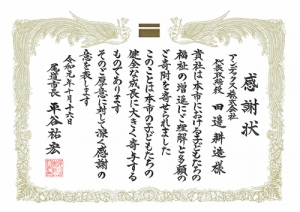 感謝状
アンデックス株式会社
代表取締役 田邉耕造様
貴社は本市における子どもたちの
福祉の増進にご理解と多額の
ご寄附を寄せられました
このことは本市の子どもたちの
健全な成長に大きく寄与する
ものであります
そのご厚意に対して深く感謝の
意を表します
令和元年十月十六日
尾道市長 平谷祐宏